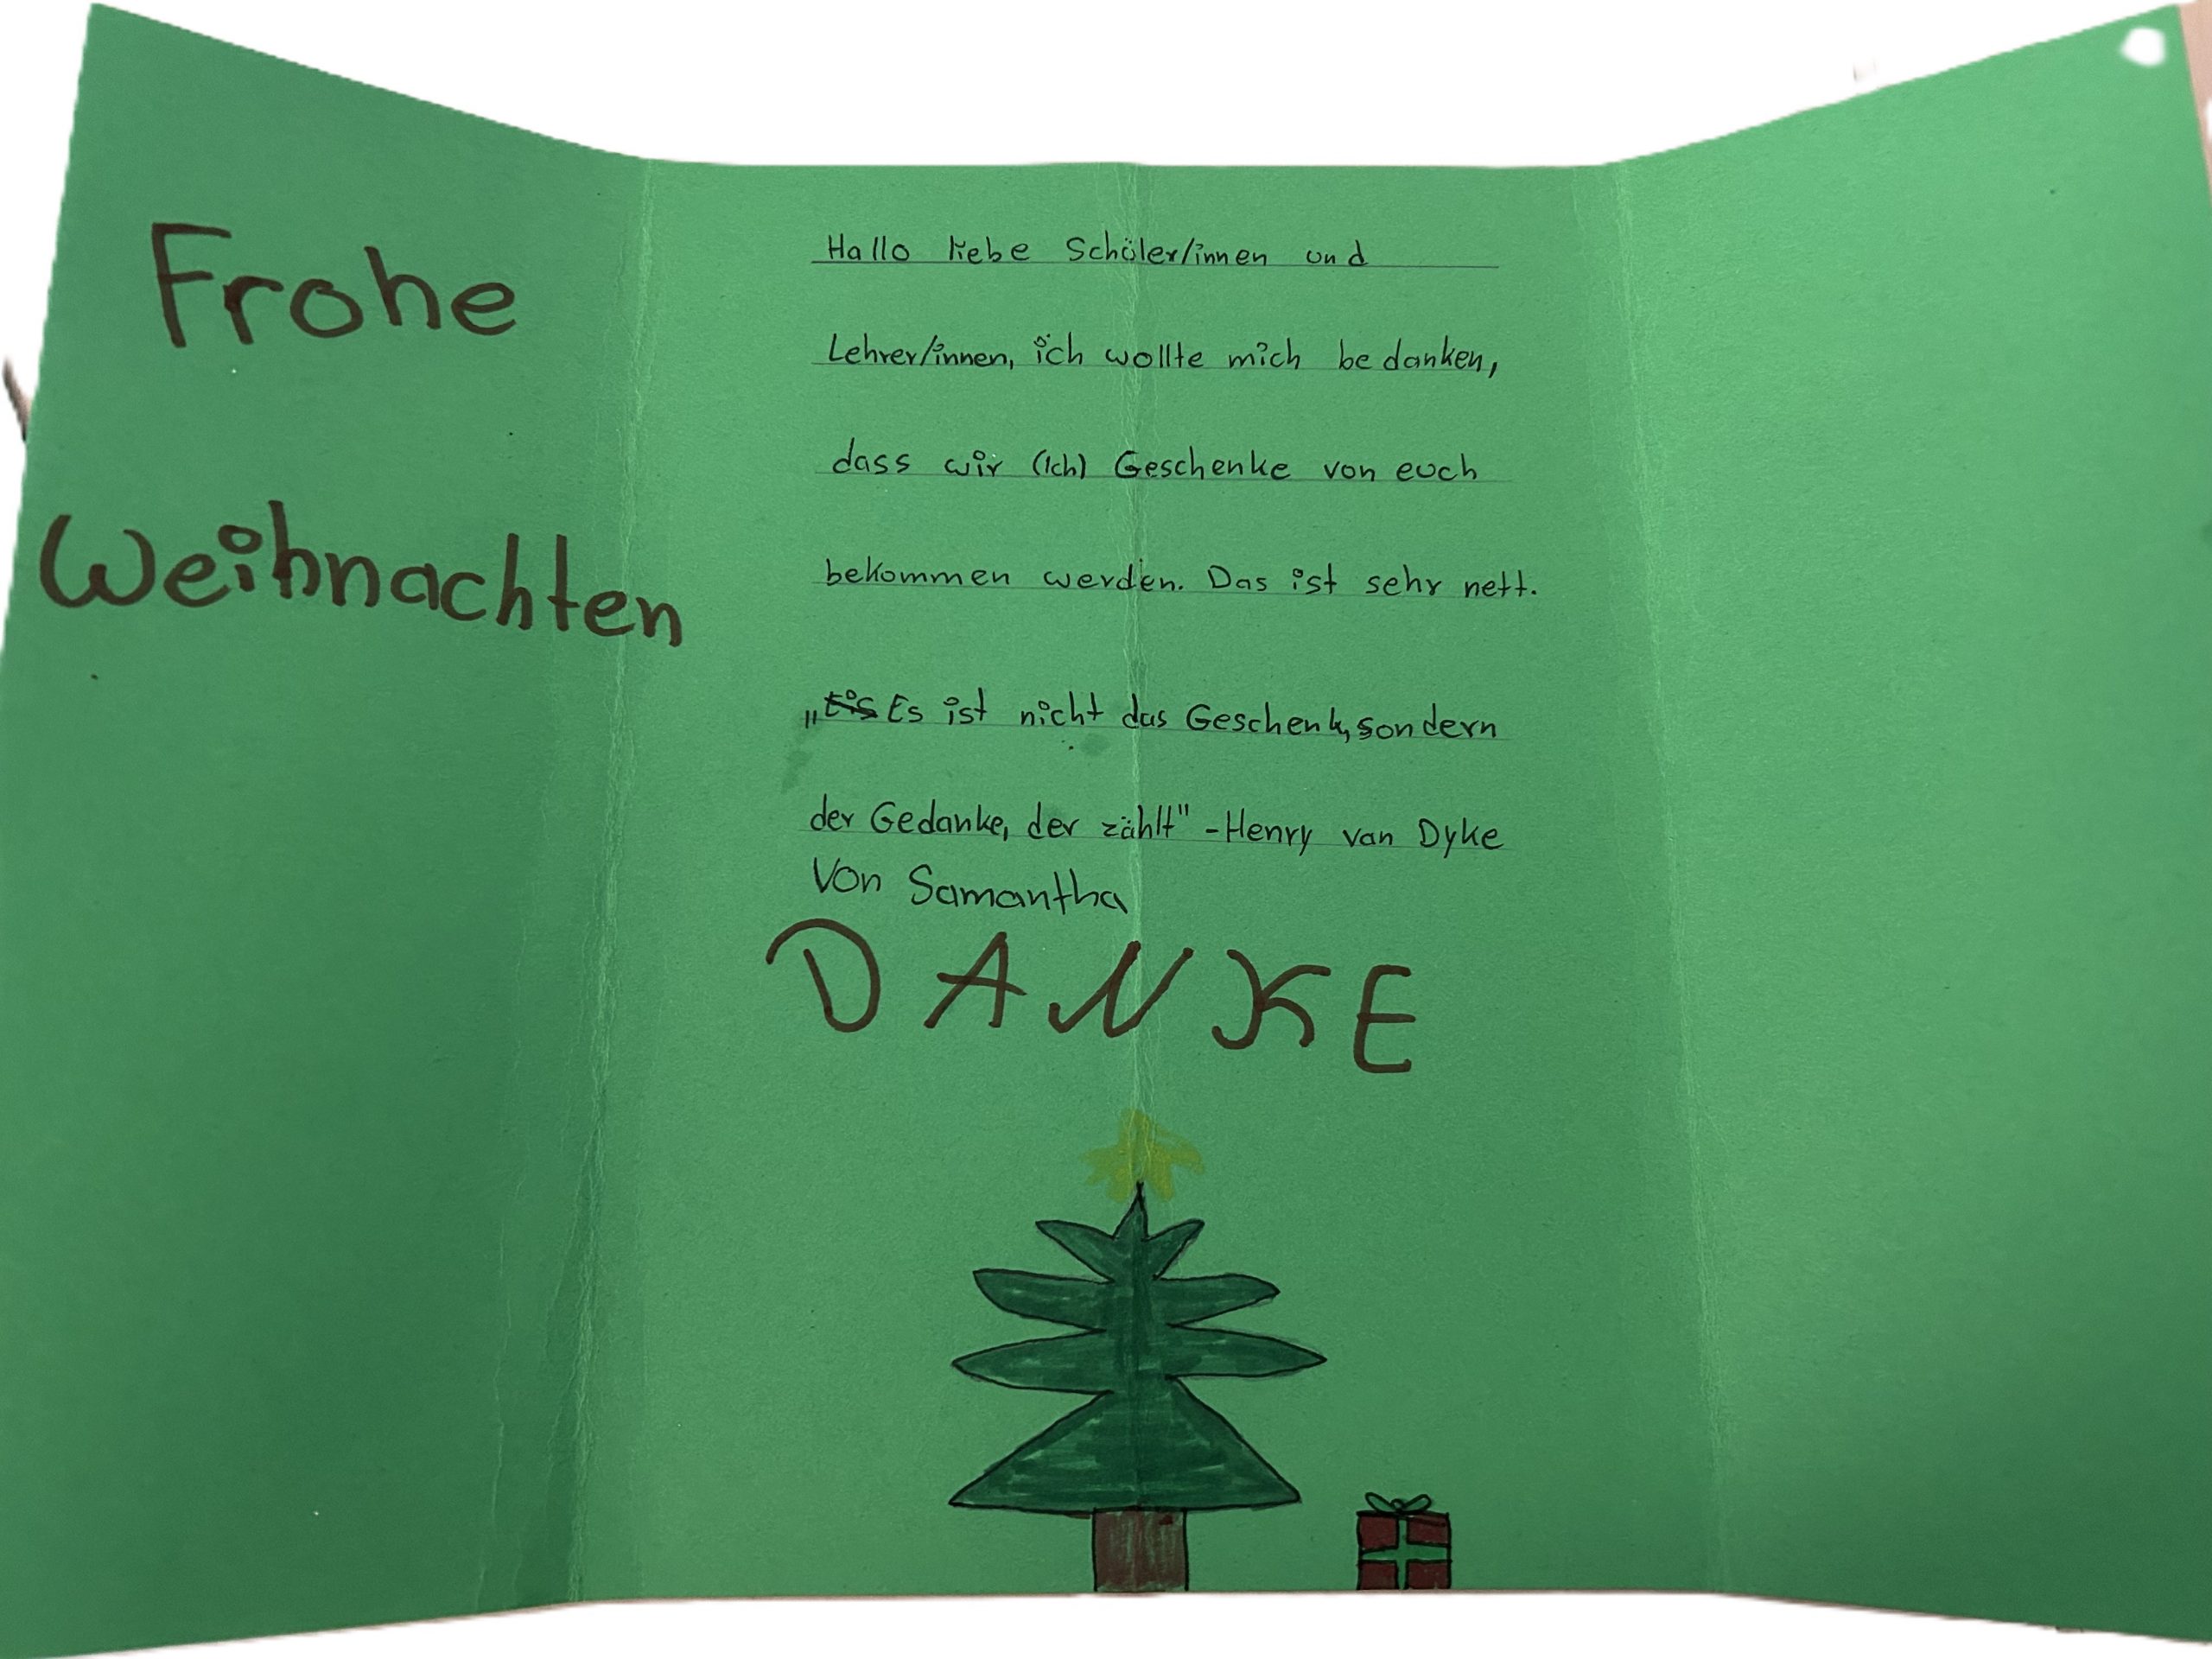 Frohe
Weihnachten
Hallo liebe Schüler/innen und
Lehrer/innen, ich wollte mich bedanken,
dass wir (Ich) Geschenke von euch
bekommen werden. Das ist sehr nett.
„Es ist nicht das Geschenk, sondern
der Gedanke, der zählt" - Henry van Dyke
Von Samantha
DANKE